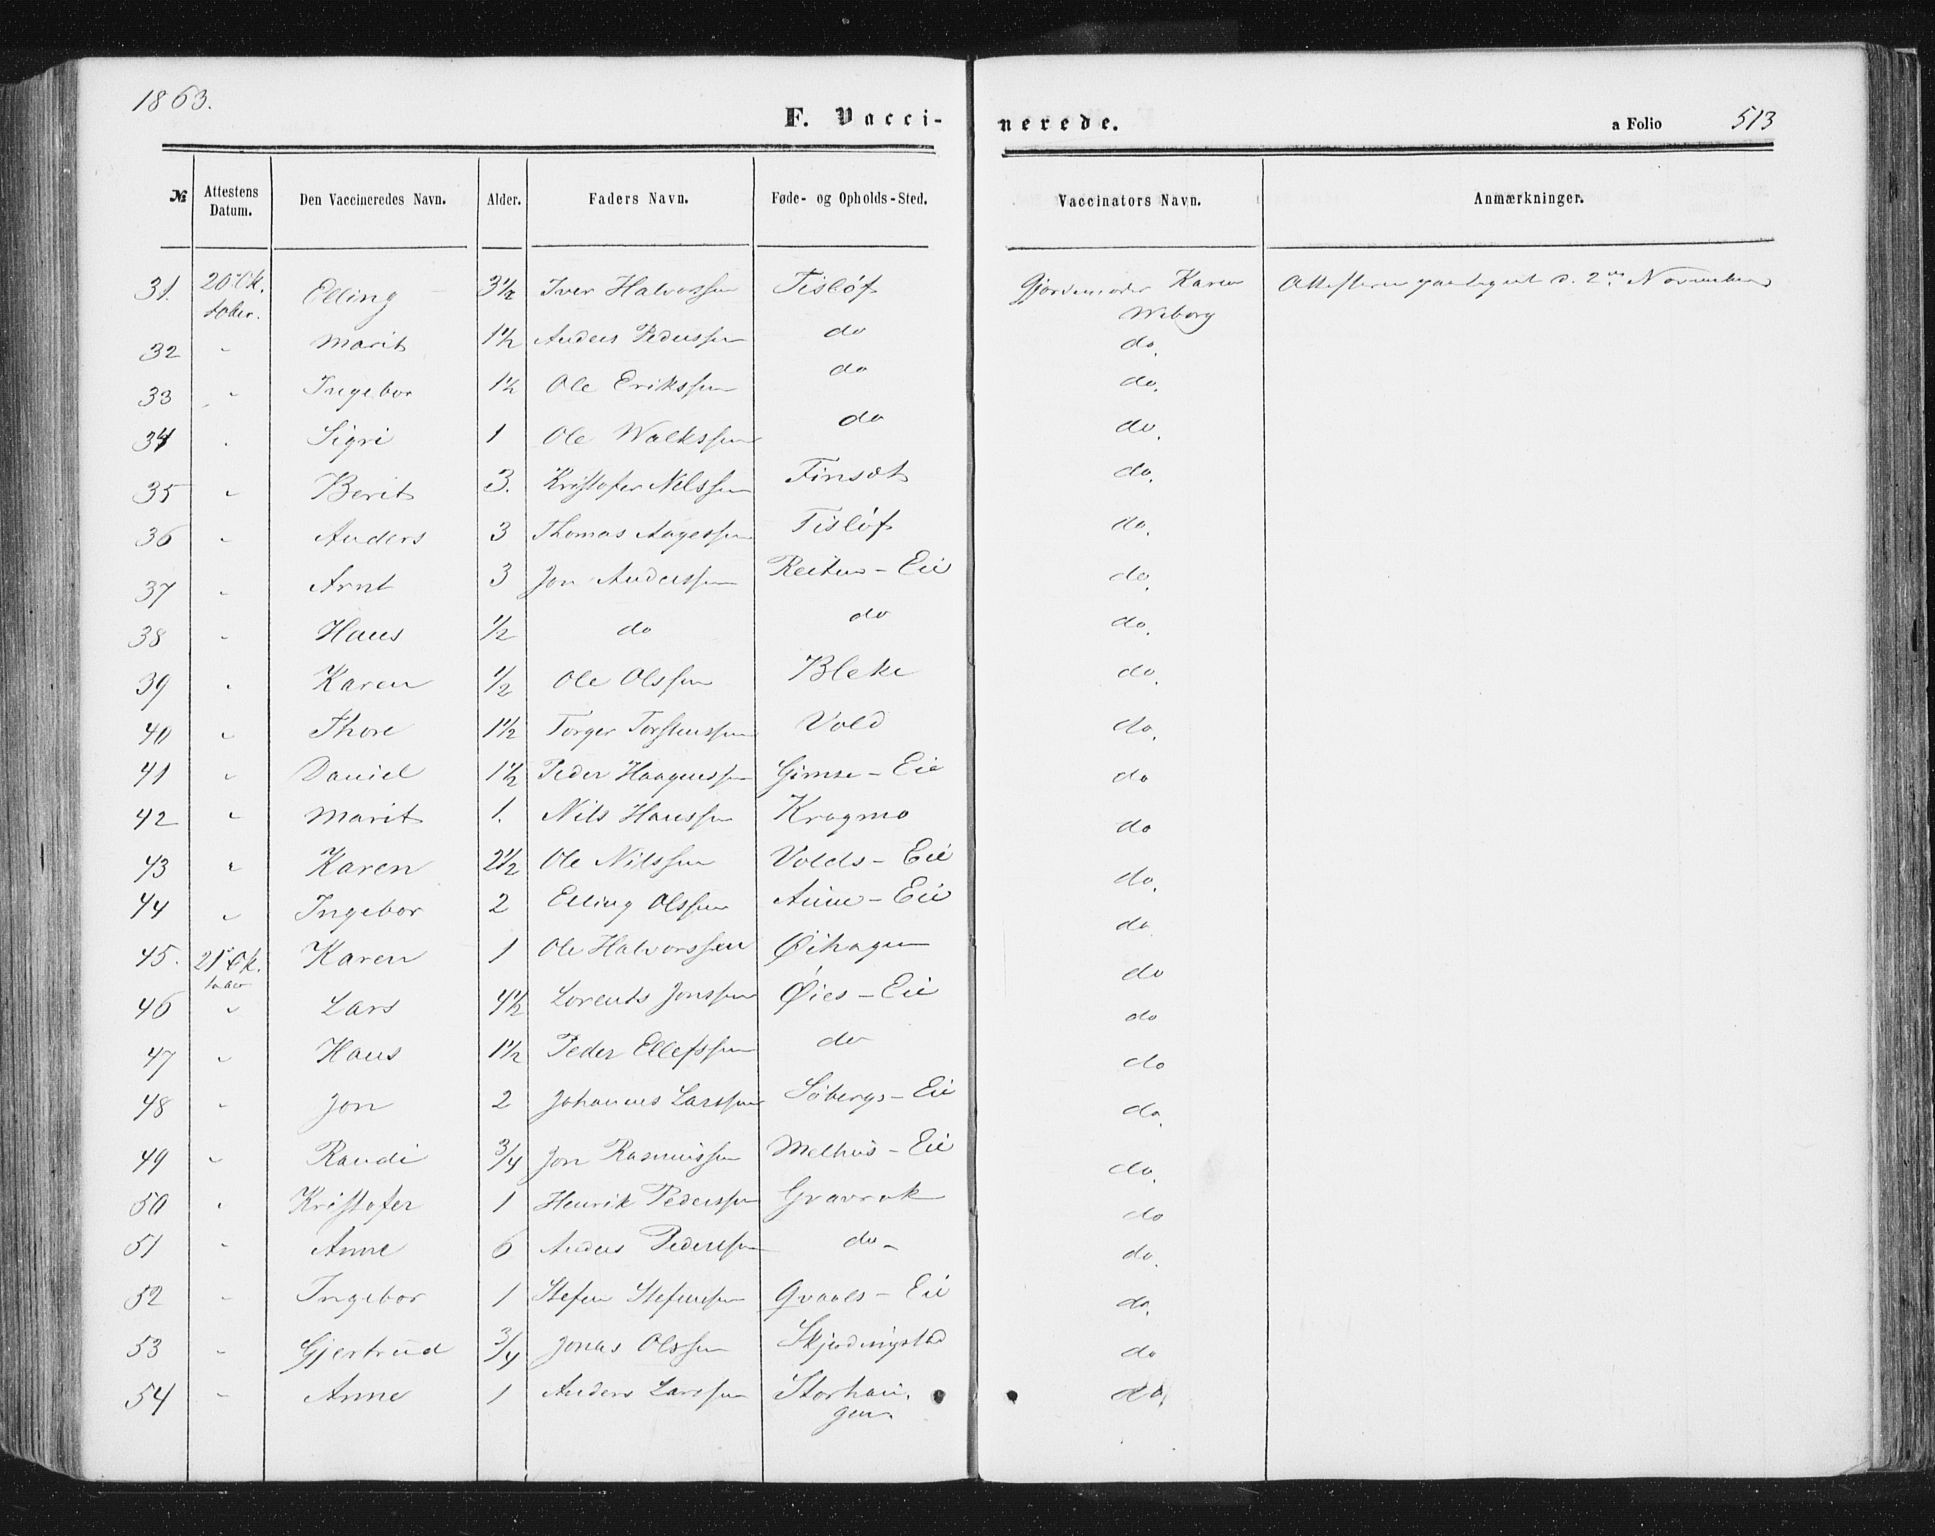 1863.
F. Vacci-
nerede.
a Folio 513
№ Attestens Datum. Den Vaccineredes Navn. Alder. Faders Navn. Føde- og Opholds-Sted. Vaccinators Navn. Anmærkninger.
31. 20 Ok- Elling 3½ Iver Halvorssen Tisløf Gjordemoder Karen 2den November
tober. Weborg
32 " Marit 1½ Anders Pederssen do do.
33 " Ingebor 1½ Ole Erikssen do do.
34 " Sigri 1 Ole do do.
35 " Berit 3. Kristofer Nilssen Finsæt do.
36 " Anders 3 Thomas Aagessen Tisløf do.
37 " Arnt 3 Jon Anderssen Reitus-Eie do.
38 " Hans ½ do do do.
39 " Karen ½ Ole Olssen Bleke do.
40 " Thore 1½ Torger Torstenssen Vold do.
41 " Daniel 1½ Peder Haagenssen Gimse-Eie do
42 " Marit 1. Nils Hanssen Kragmo do
43 " Karen 2½ Ole Nilssen Volds-Eie do.
44 " Ingebor 2 Elling Olssen Aune-Eie do
45. 21 Ok- Karen 1 Ole Halvorssen Øihagen do
tober
46 " Lars 4½ Lorents Jonssen Øies-Eie do
47 " Hans 1½ Peder Ellefssen do do
48 " Jon 2 Johannes Larssen Søbergs-Eie do.
49 " Randi ¾ Jon Rasmussen Melhus-Eie do.
50 " Kristofer 1 Henrik Pederssen Gravrok do
51 " Anne 6 Anders Pederssen do- do.
52 " Ingebor 1 Stefen Stefenssen Qvaals-Eie do.
53 " Gjertrud ¾ Jonas Olssen Skjerdingstad do
54 " Anne 1 Anders Larssen Storhau- do.
gen.